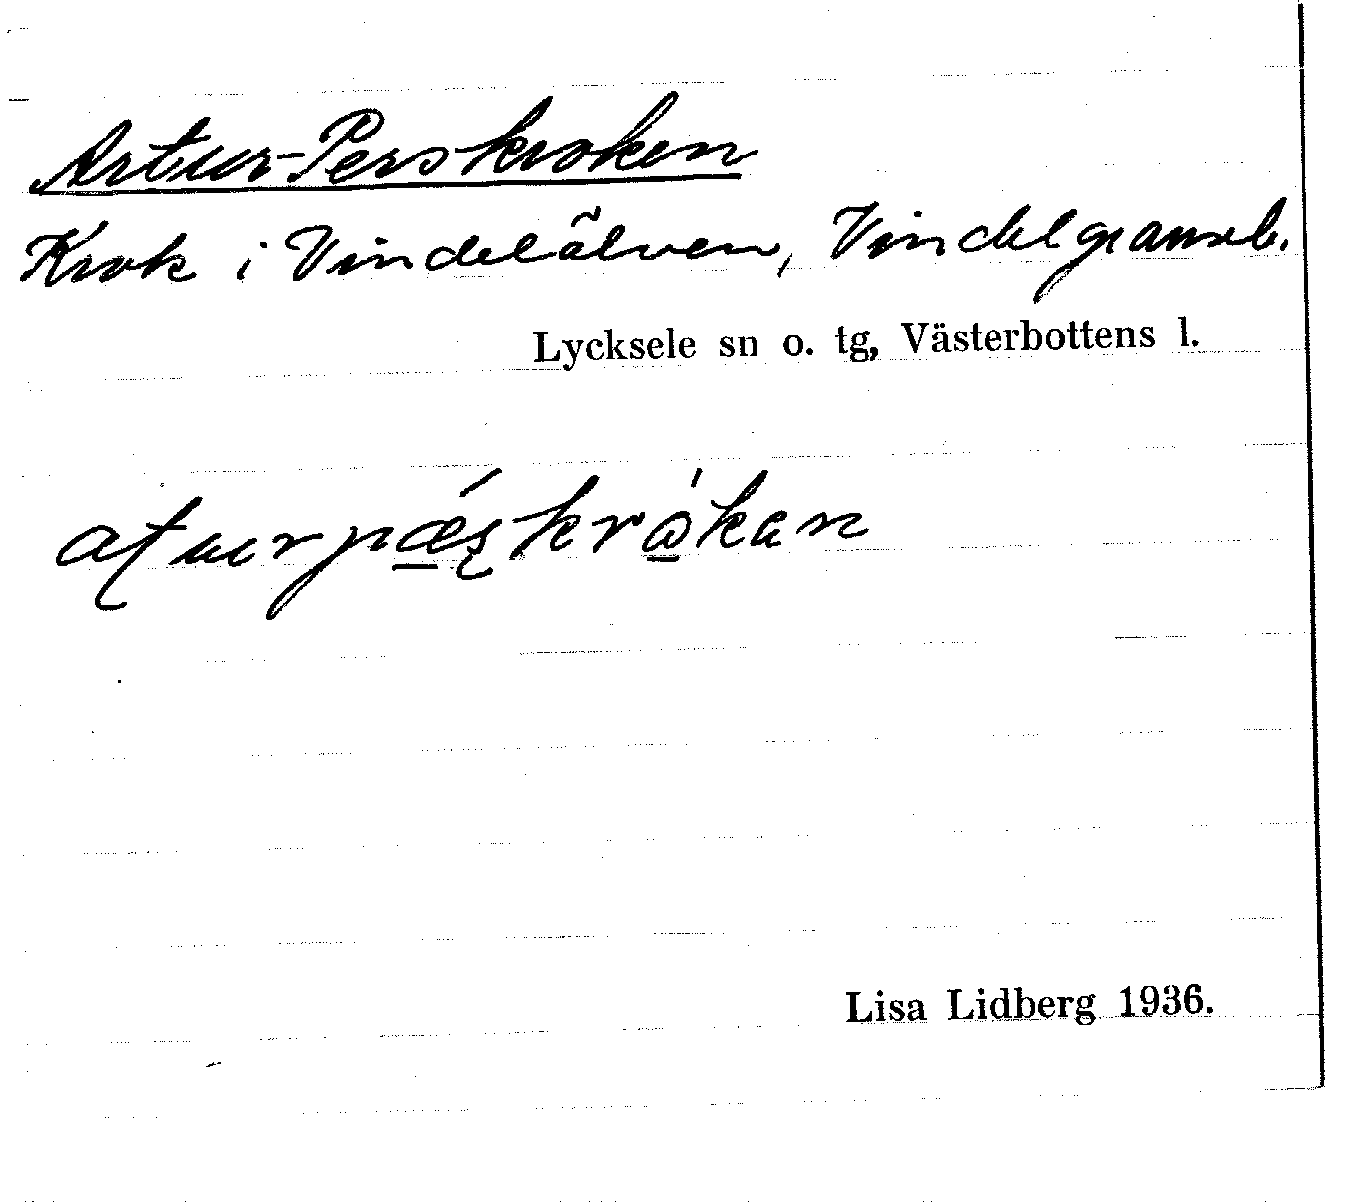 Artur-Perskroken
Krok i Vindelälven, Vindelgransele.
Lycksele sn o. tg, Västerbottens l.
Lisa Lidberg 1936.